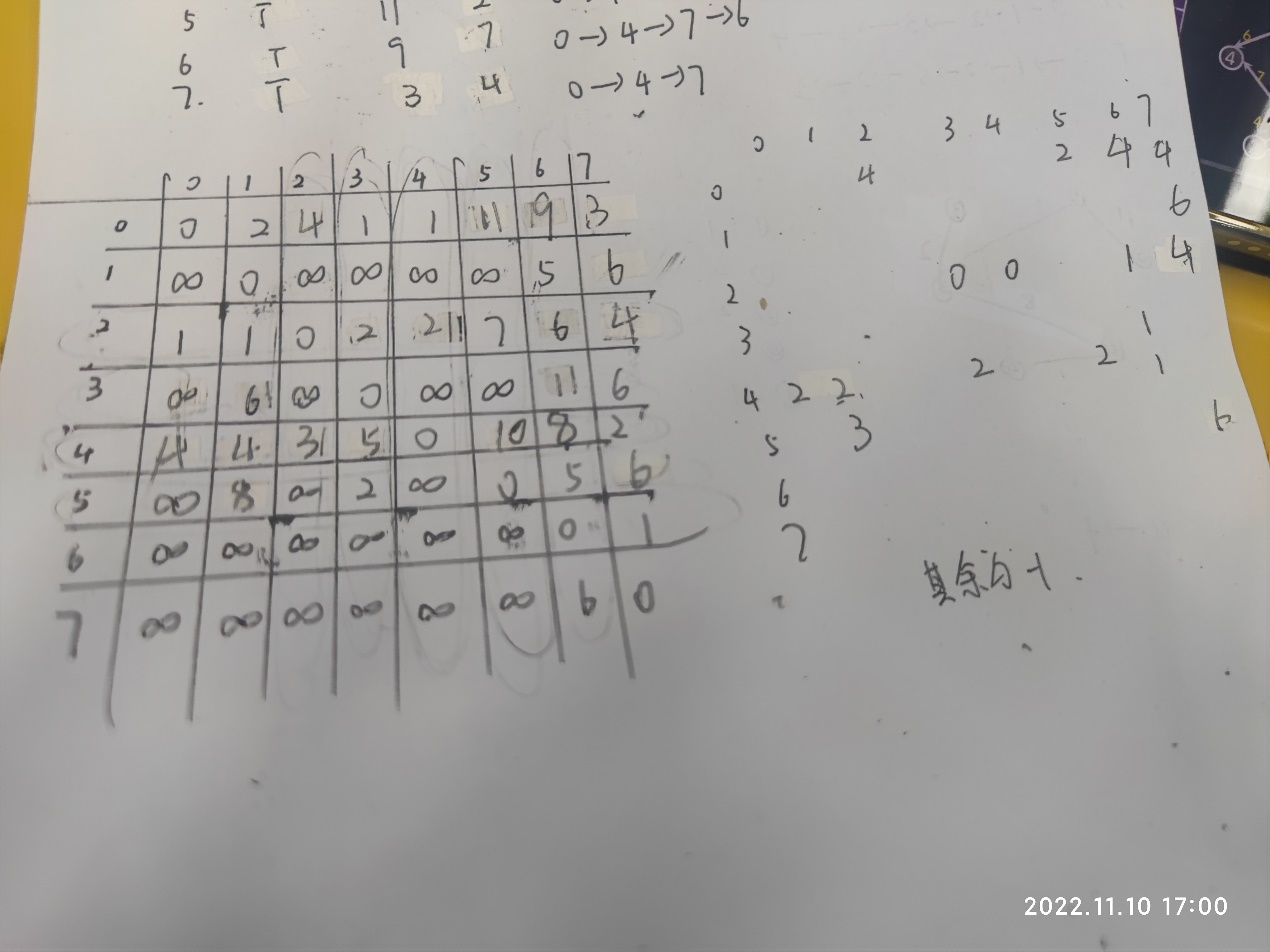 5 T 11 2
6 T 9 7 0→4→7→6
7. T 3 4 0→4→7
0 1 2 3 4 5 6 7
0 0 2 4 1 1 11 9 3
1 ∞ 0 ∞ ∞ ∞ ∞ 5 6
2 1 1 0 2 2 7 6 4
3 ∞ 6 ∞ 0 ∞ ∞ 11 6
4 4 4 3 5 0 10 8 2
5 ∞ 8 ∞ 2 ∞ 0 5 6
6 ∞ ∞ ∞ ∞ ∞ ∞ 0 1
7 ∞ ∞ ∞ ∞ ∞ ∞ 6 0
0 1 2 3 4 5 6 7
0 4 2 4 4
1 6
2 0 0 1 4
3 1
4 2 2 2 2 1
5 3 6
6
7
其余均-1.
4
6
7
2022.11.10 17:00